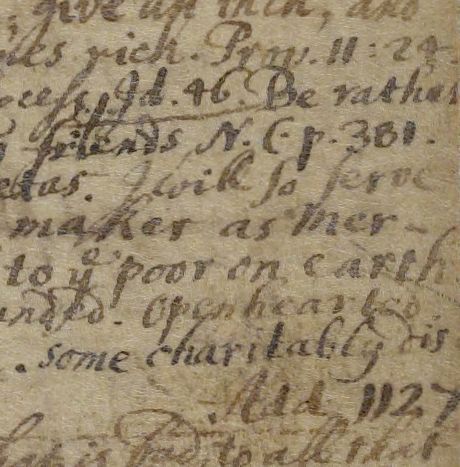 give an inch, and
rich. Prov. 11:24
Id. 46. Be rather
friends N. C. p. 381.
etas. I will so serve
maker as Mer-
to yᵉ poor on earth
unded. Openhearted
. Some charitably dis
Add. 1127
that is to all that